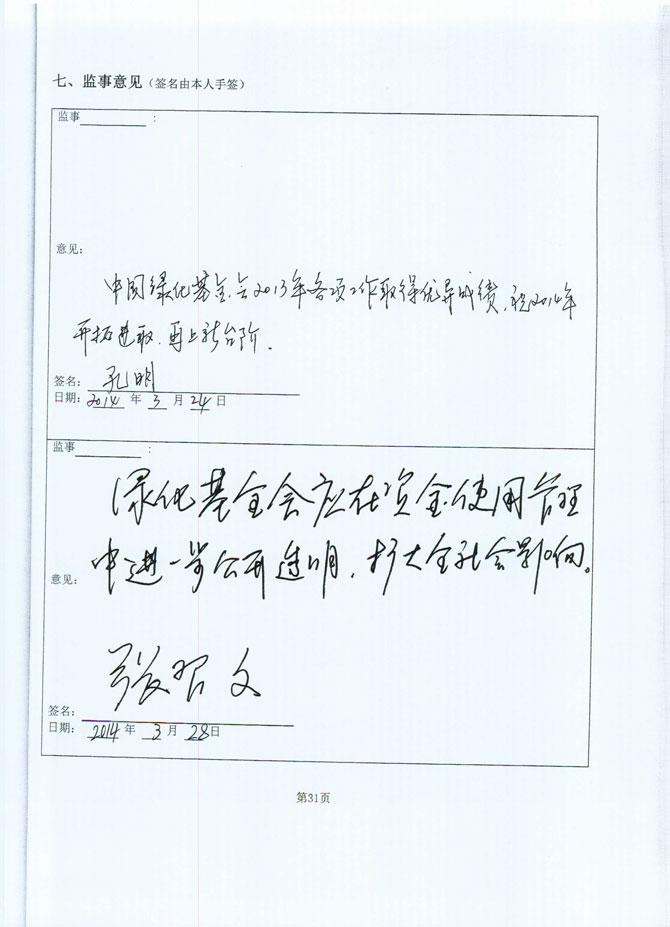 七、监事意见（签名由本人手签）
监事
：
意见：
中国绿化基金会2013年各项工作取得优异成绩，祝2014年
开拓进取，再上新台阶。
签名： 孔明
日期：2014 年 3 月 24 日
监事
：
绿化基金会应在资金使用管理
意见： 中进一步公开透明，扩大全社会影响。
签名： 张 文
日期：2014 年 3 月 28 日
第31页